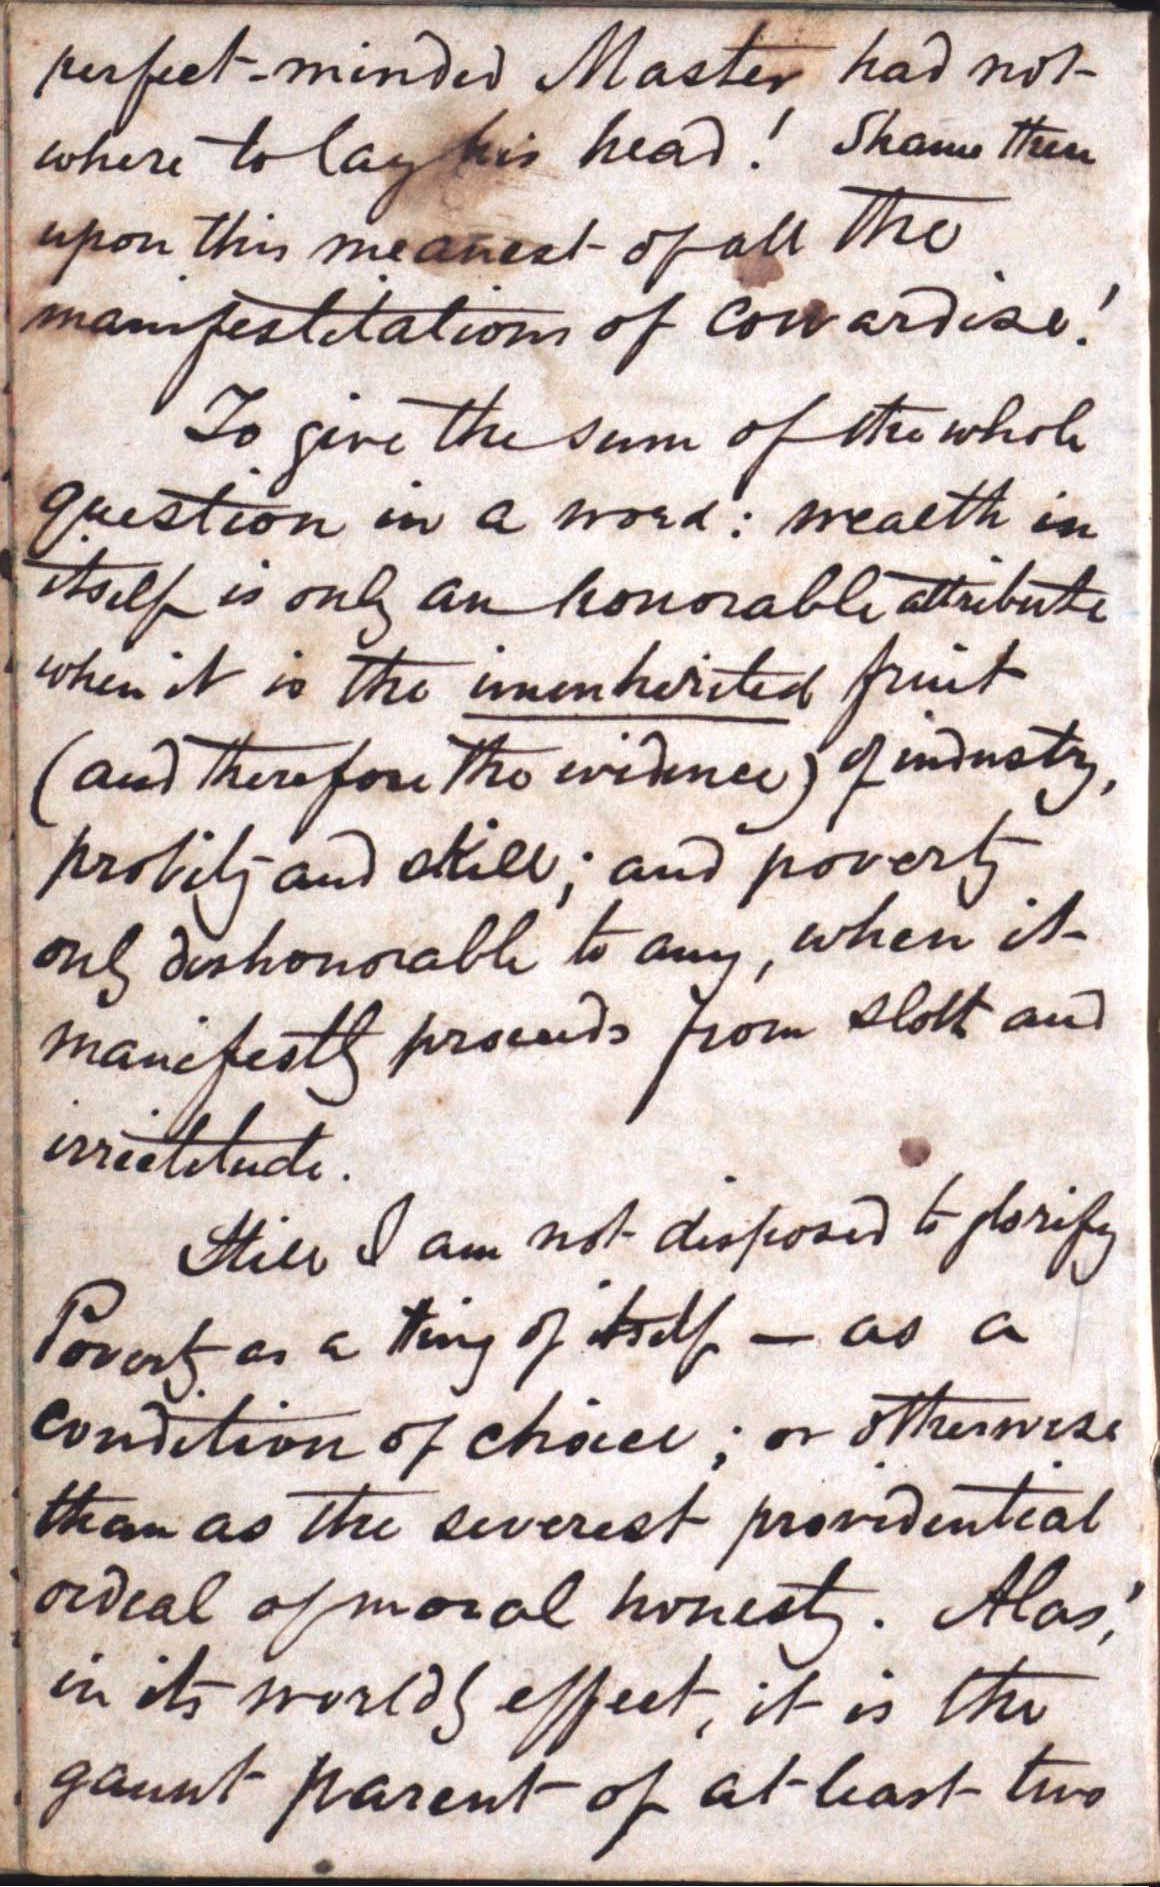 perfect-minded Master had not
where to lay his head! Shame then
upon this meanest of all the
manifestitations of cowardise!
To give the sum of the whole
question in a word: wealth in
itself is only an honorable attribute
when it is the unenherited fruit
(and therefore the evidence) of industry,
probity and skill; and poverty
only dishonorable to any, when it
manifestly proceeds from sloth and
irrectitude.
Still I am not disposed to glorify
Poverty as a ting of itself — as a
condition of choice; or otherwise
than as the severest providential
ordeal of moral honesty. Alas!,
in its worldly effect, it is the
gaunt parent of at least two